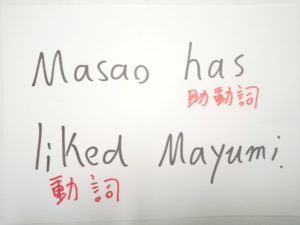 Masao has
助動詞
liked Mayumi.
動詞